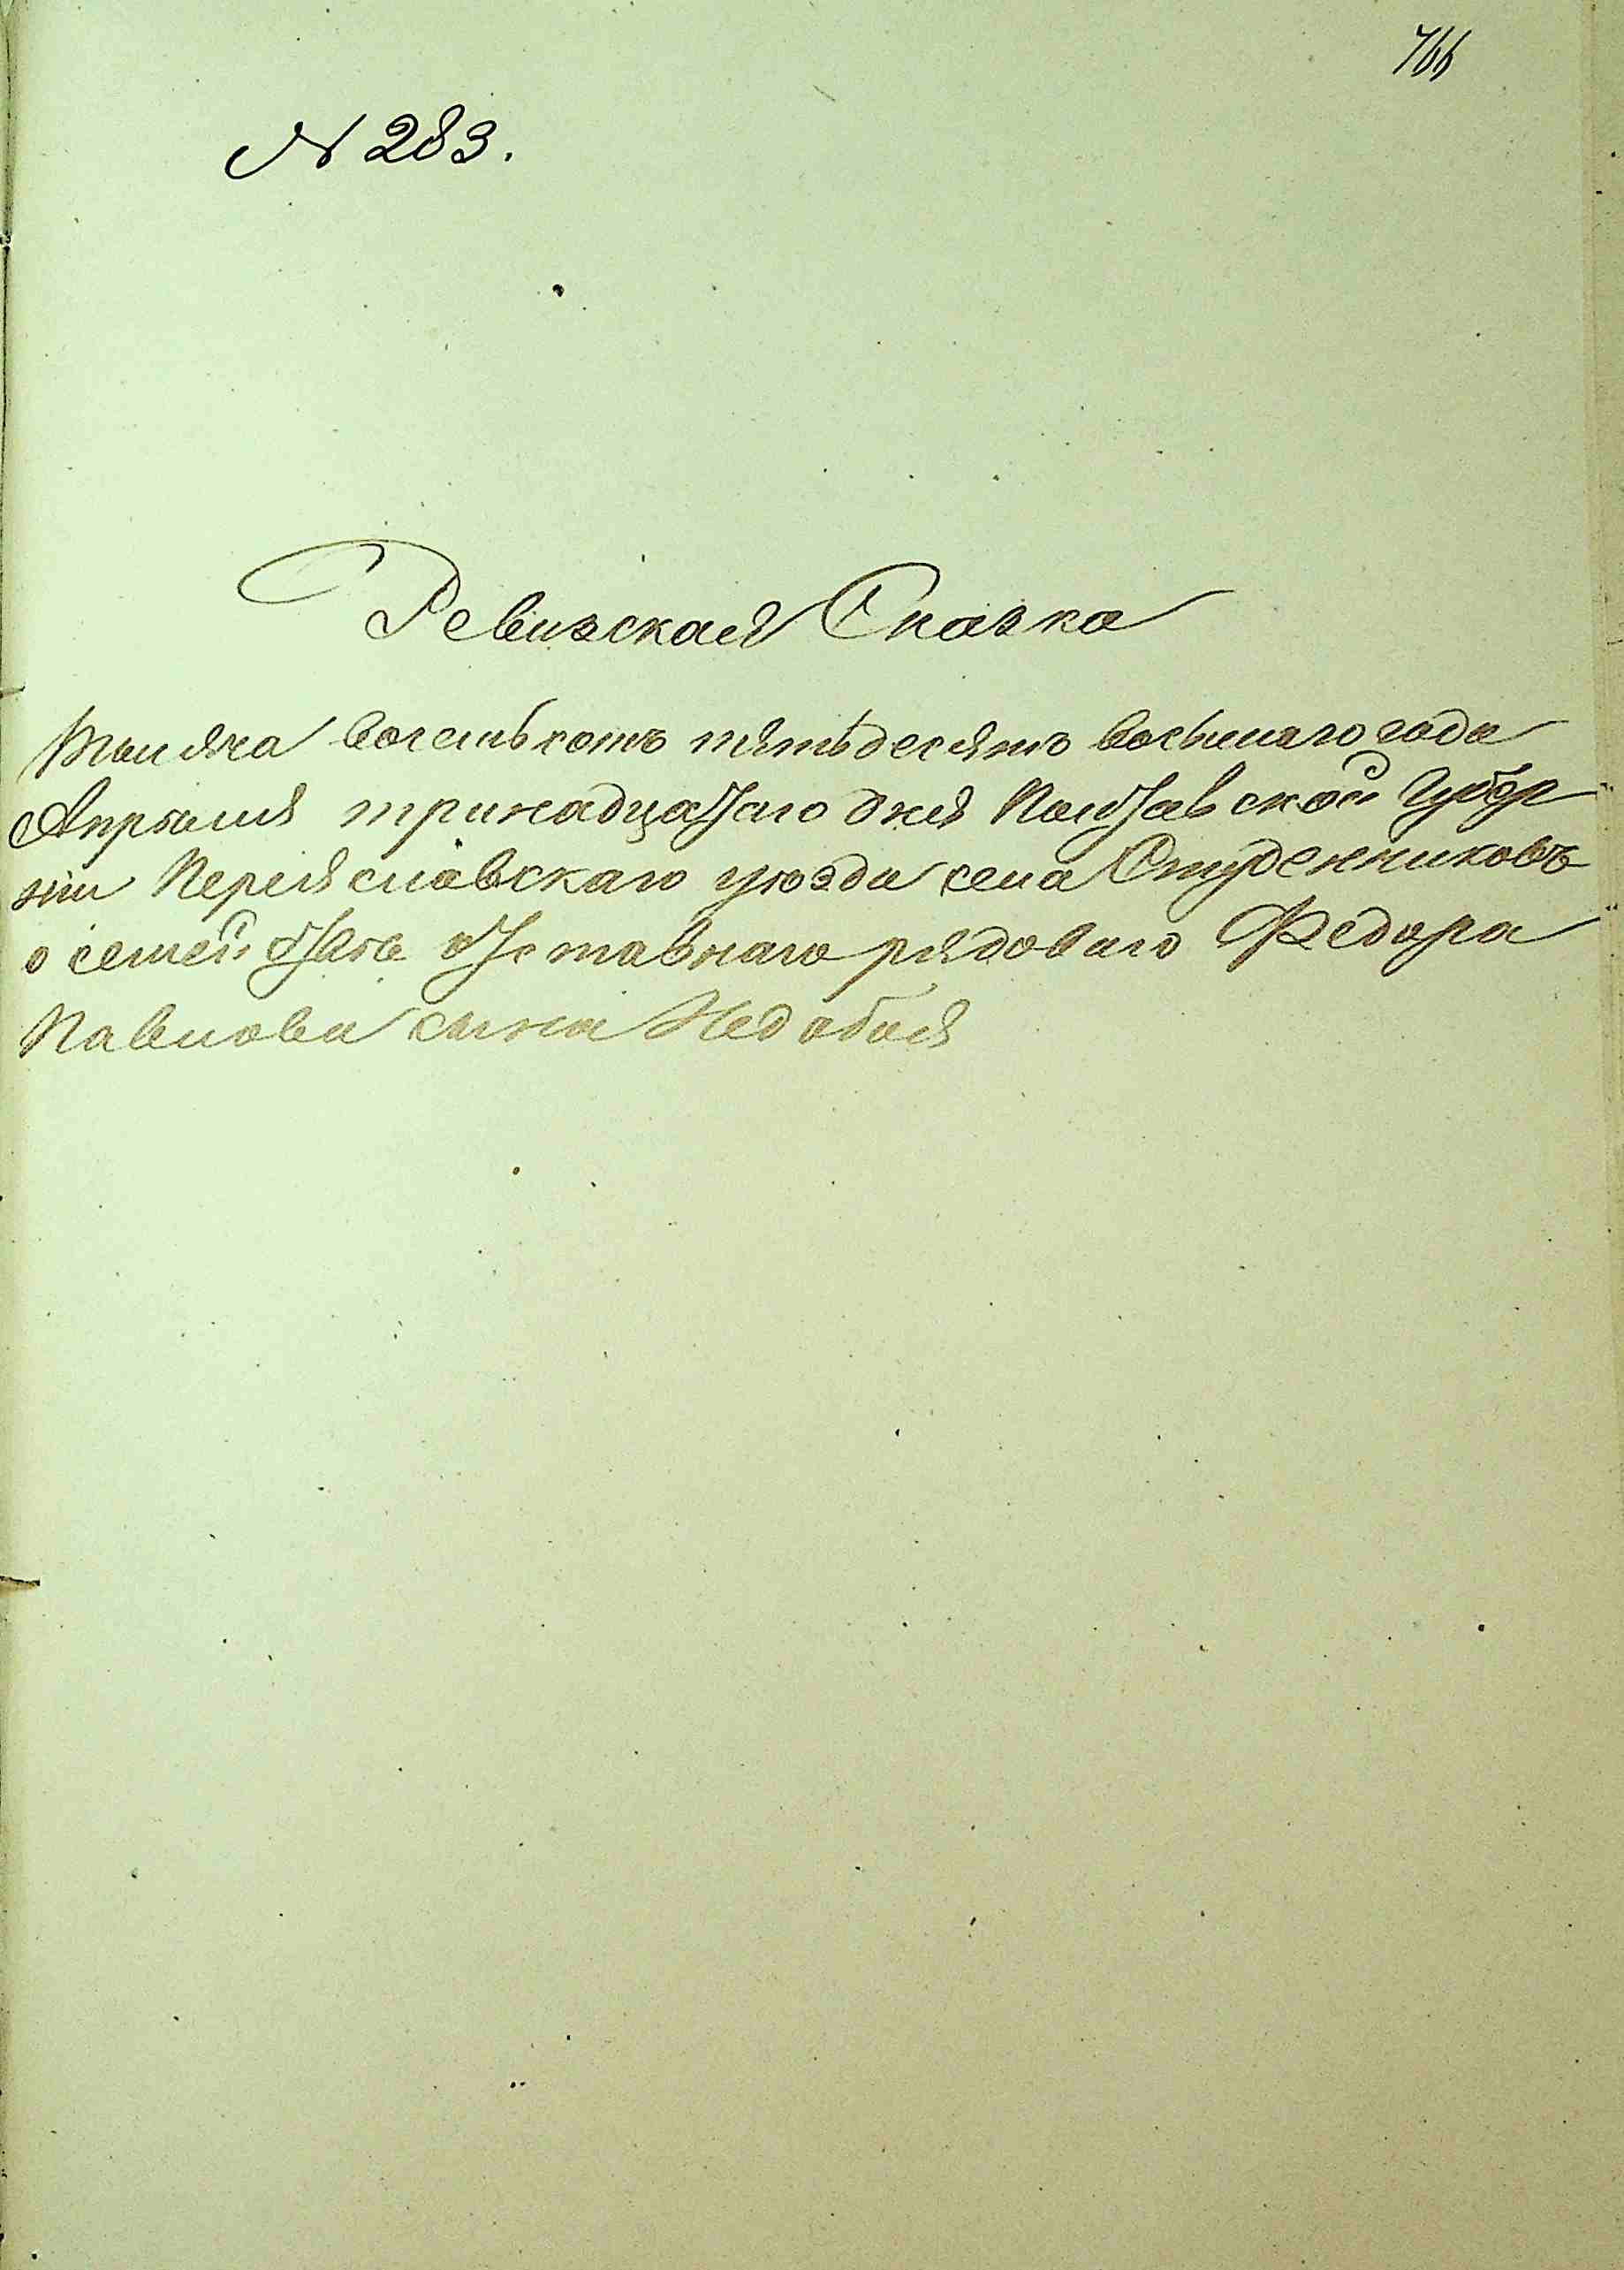 766
№ 283.
Ревизская Сказка
Тысяча восемьсотъ пятьдесятъ восьмаго года
Апрѣля тринадцатаго дня Полтавской Губер
нии Переяславскаго уѣзда села Студенниковъ
о семействе отставнаго рядоваго Федора
Павлова сына Недобоя